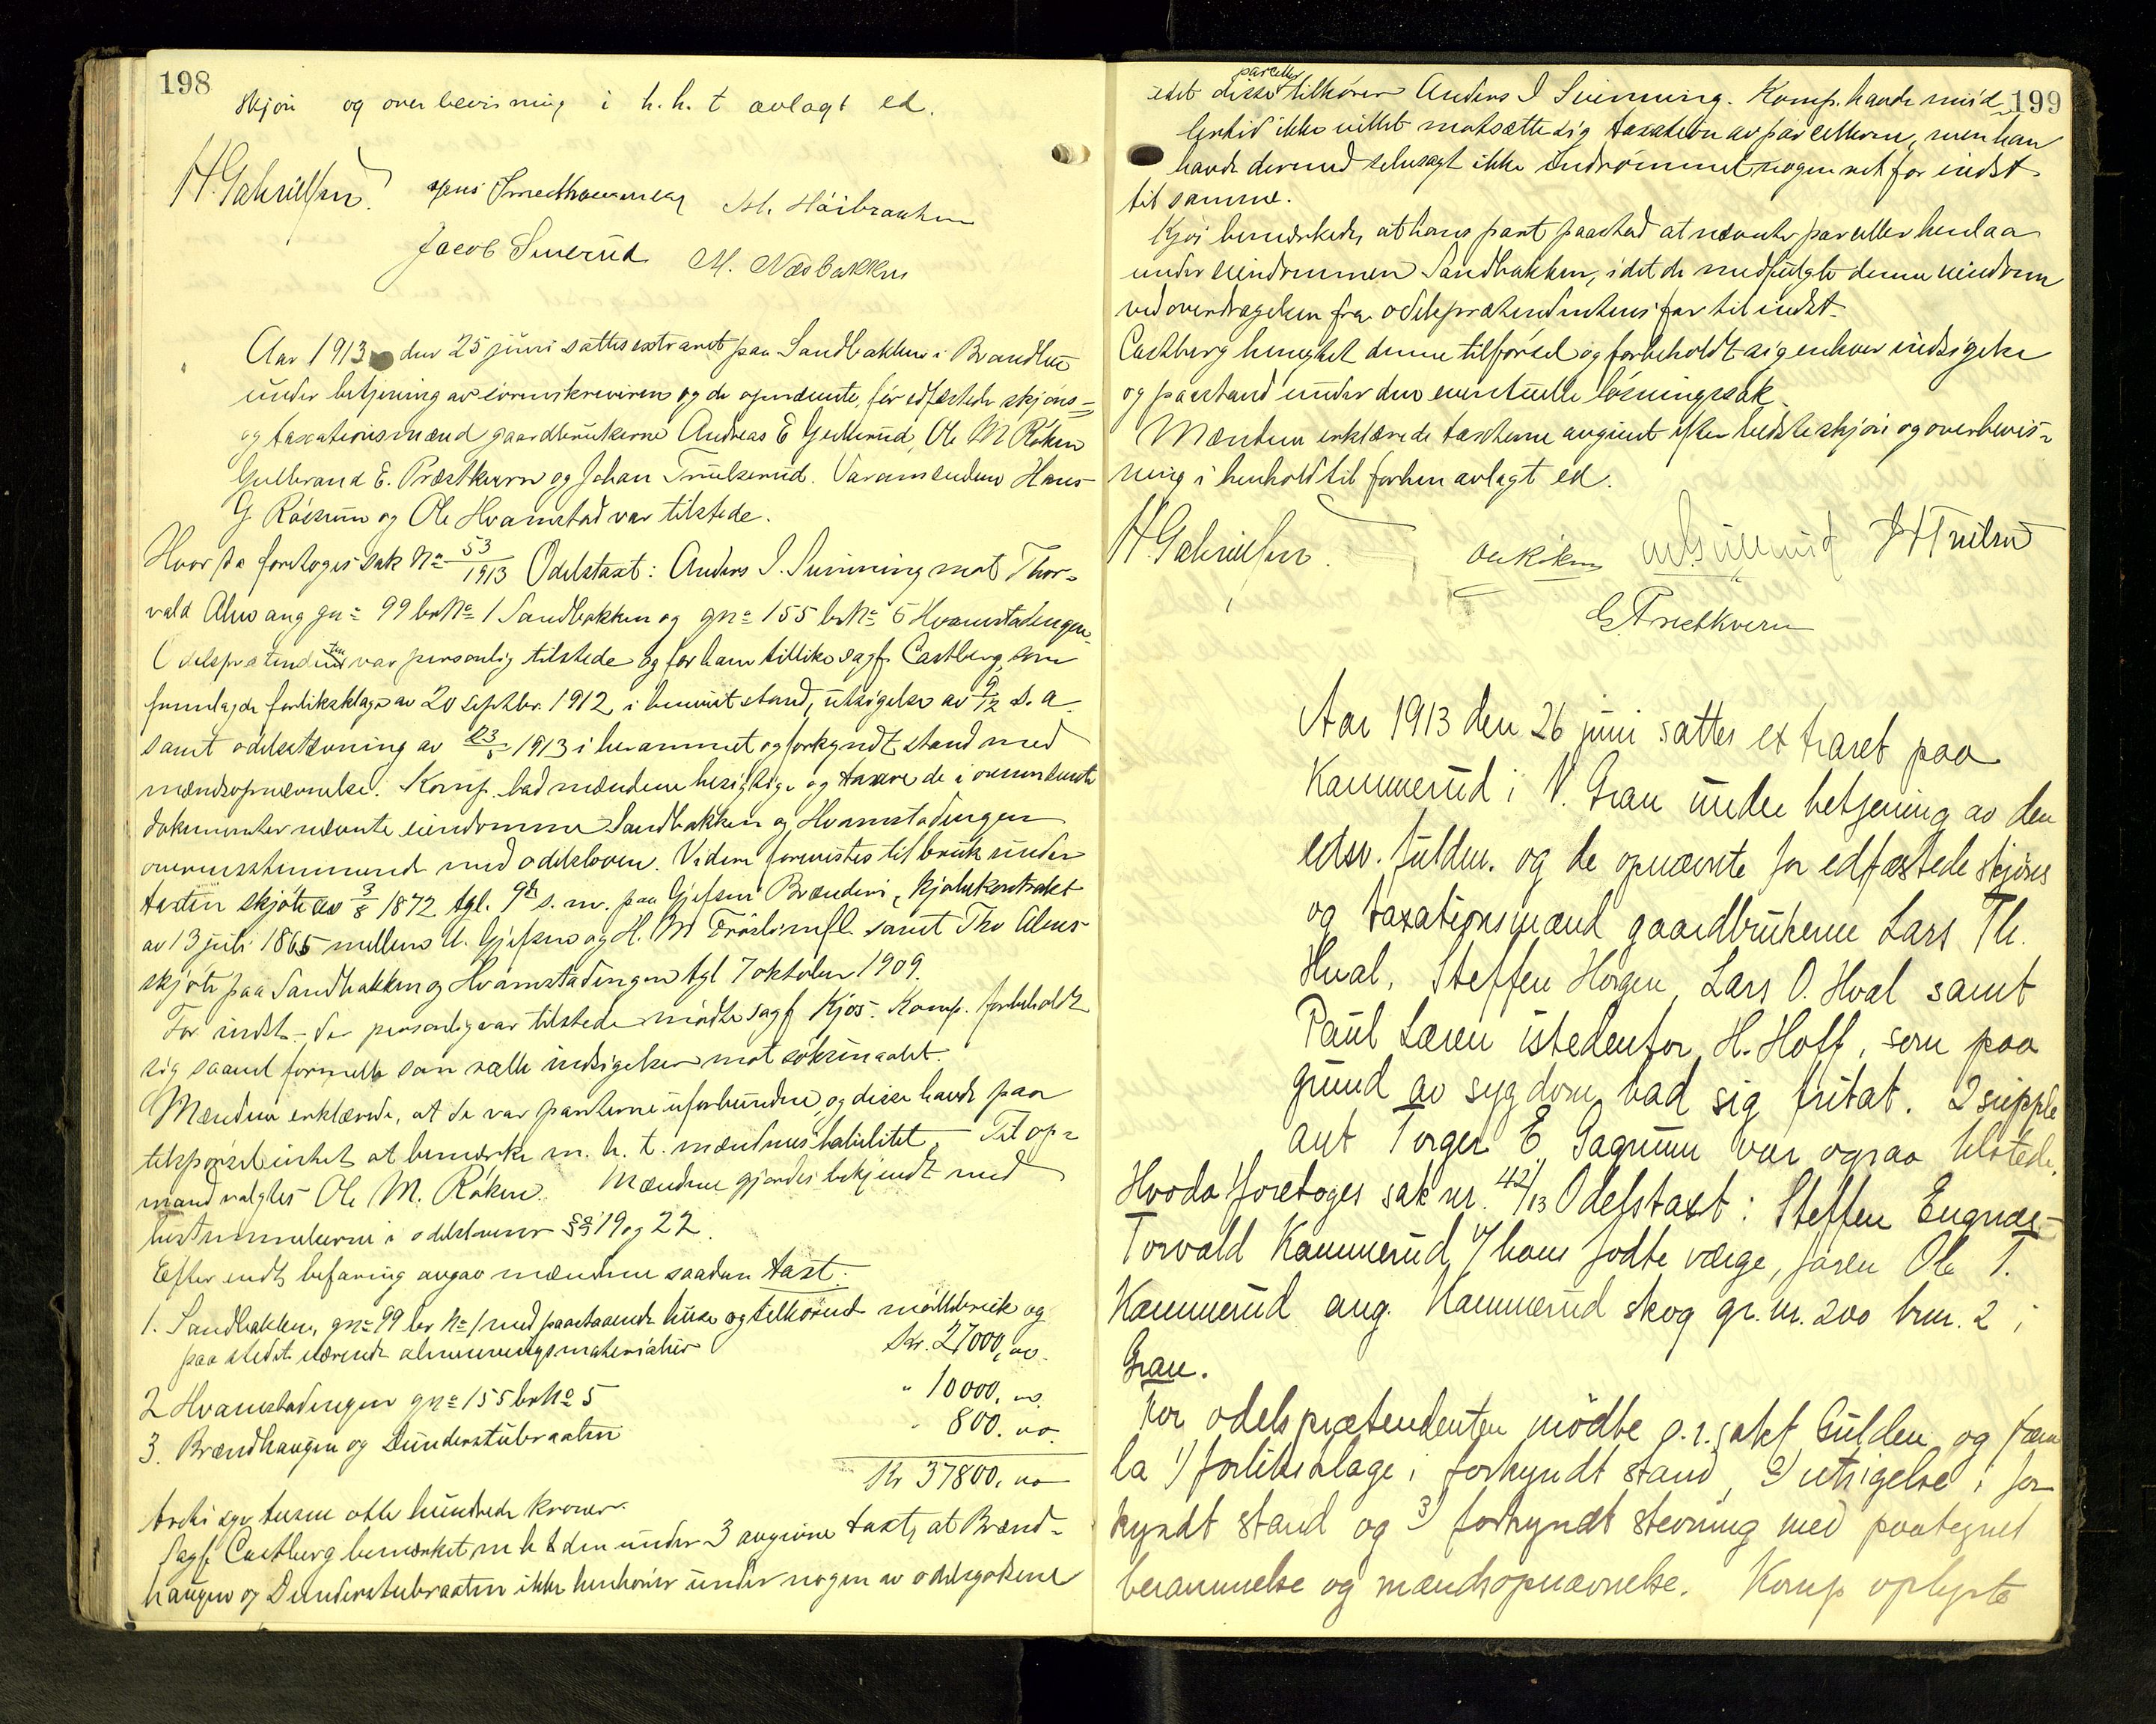 198
skjøn og overbevisning i h. h. t avlagt ed.
H. Gabrielsen. Jens M. Høibrauten
Jacob Smerud M. Næsbakken
Aar 1913 den 25 juni sattes extraret paa Sandbakken i Brandbu
under betjening av sorenskriveren og de opnævnte, før edfæstede skjøns-
og taxationsmænd gaardbrukerne Andreas E Gullerud, Ole M Røken
Gulbrand E. Præstkvern og Johan Trulserud. Varamændene Hans
G Røisum og Ole Hvamstad var tilstede.
Hvor da foretoges sak No 53/1913 Odelstaxt: Anders I. Svinning mot Thor-
vald Alm ang gn= 99 br No 1 Sandbakken og gn= 155 br No 5 Hvamstadengen
Odelsprætendenten var personlig tilstede og for ham tillike sagf. Castberg, som
fremlagde forliksklage av 20 septbr. 1912, i beviist stand, utsigelse av 9/12 s. a.
samt odelsstevning av 23/5 1913 i berammet og forkyndt stand med
mændsopnævnelse. Komp. bad mændene besigtige og taxere de i ovennævnte
dokumenter nævnte eiendomme Sandbakken og Hvamstadengen
overensstemmende med odelsloven. Videre forevistes til bruk under
taxten skjøte av 3/8 1872 tgl. 9de s. m. paa Gjefsen Brænderi, kjøbekontrakt
av 13 juli 1865 mellem A. Gjefsen og H. M Frøslie m fl. samt Tho Alms
skjøte paa Sandbakken og Hvamstadengen tgl 7 oktober 1909.
For indst. der personlig var tilstede mødte sagf Kjos. Komp. forbeholdt
sig saavel formelle som reelle indsigelser mot søksmaalet.
Mændene erklærede, at de var parterne uforbundne, og disse havde paa
tilspørsel intet at bemerke m. h. t. mændenes habilitet. Til op-
mand valgtes Ole M. Røken. Mændene gjordes bekjendt med
bestemmelserne i odelsloven §§ 19 og 22.
Efter endt befaring avgav mændene saadan taxt:
1. Sandbakken, gn= 99 br No 1 med paastaaende huse og tilhørende møllebruk og
paa stedet værende Kr. 27000,00.
2 Hvamstadengen gn= 155 br No 5 " 10000.00.
3. Brændhaugen og Dunderstubraaten " 800.00.
Kr 37800.00
treti syv tusen otte hundrede kroner.
Sagf Castberg bemerket m h t den under 3 avgivne taxt, at Brænd-
haugen og Dunderstubraaten ikke henhører under nogen av odelsgodsene
199
idet disse parceller tilhører Anders I Svinning. Komp. havde imid-
lertid ikke villet motsætte sig taxation av parcellerne, men han
havde dermed selvsagt ikke indrømmet nogen ret for indst
til samme.
Kjos bemerkede, at hans part paastod at nævnte parceller henlaa
under eiendommen Sandbakken, idet de medfulgte denne eiendom
ved overdragelsen fra odelsprætendentens far til indst.
Castberg benegtet denne tilførsel og forbeholdt sig enhver indsigelse
og paastand under den eventuelle løsningssak.
Mændene erklærede taxterne avgivet efter bedste skjøn og overbevis-
ning i henhold til forhen avlagt ed.
H. Gabrielsen. Ole Røken J H Trulsrud
G. Præstkvern
Aar 1913 den 26 juni sattes ext raret paa
Kammerud i V. Gran under betjening av den
edsv. fuldm. og de opnævnte før edfæstede skjøns
og taxationsmænd gaardbrukerne Lars Th.
Hval, Steffen Horgen, Lars O. Hval samt
Paul Læren istedenfor H. Hoff, som paa
grund av sygdom bad sig fritat. 2 supple
ant Torger E. Gagnum var ogsaa tilstede.
Hvoda foretoges sak nr. 42/13 Odelstaxt: Steffen Engnæs-
Torvald Kammerud v/ hans fødte værge, faren Ole T.
Kammerud ang. Kammerud skog gr. nr. 200 brnr. 2 i
Gran.
For odelsprætendenten mødte o.r.sakf. Gulden og frem
la 1) forliksklage i forkyndt stand, 2) utsigelse i for
kyndt stand og 3) forkyndt stevning med paategnet
berammelse og mændsopnævnelse. Komp oplyste